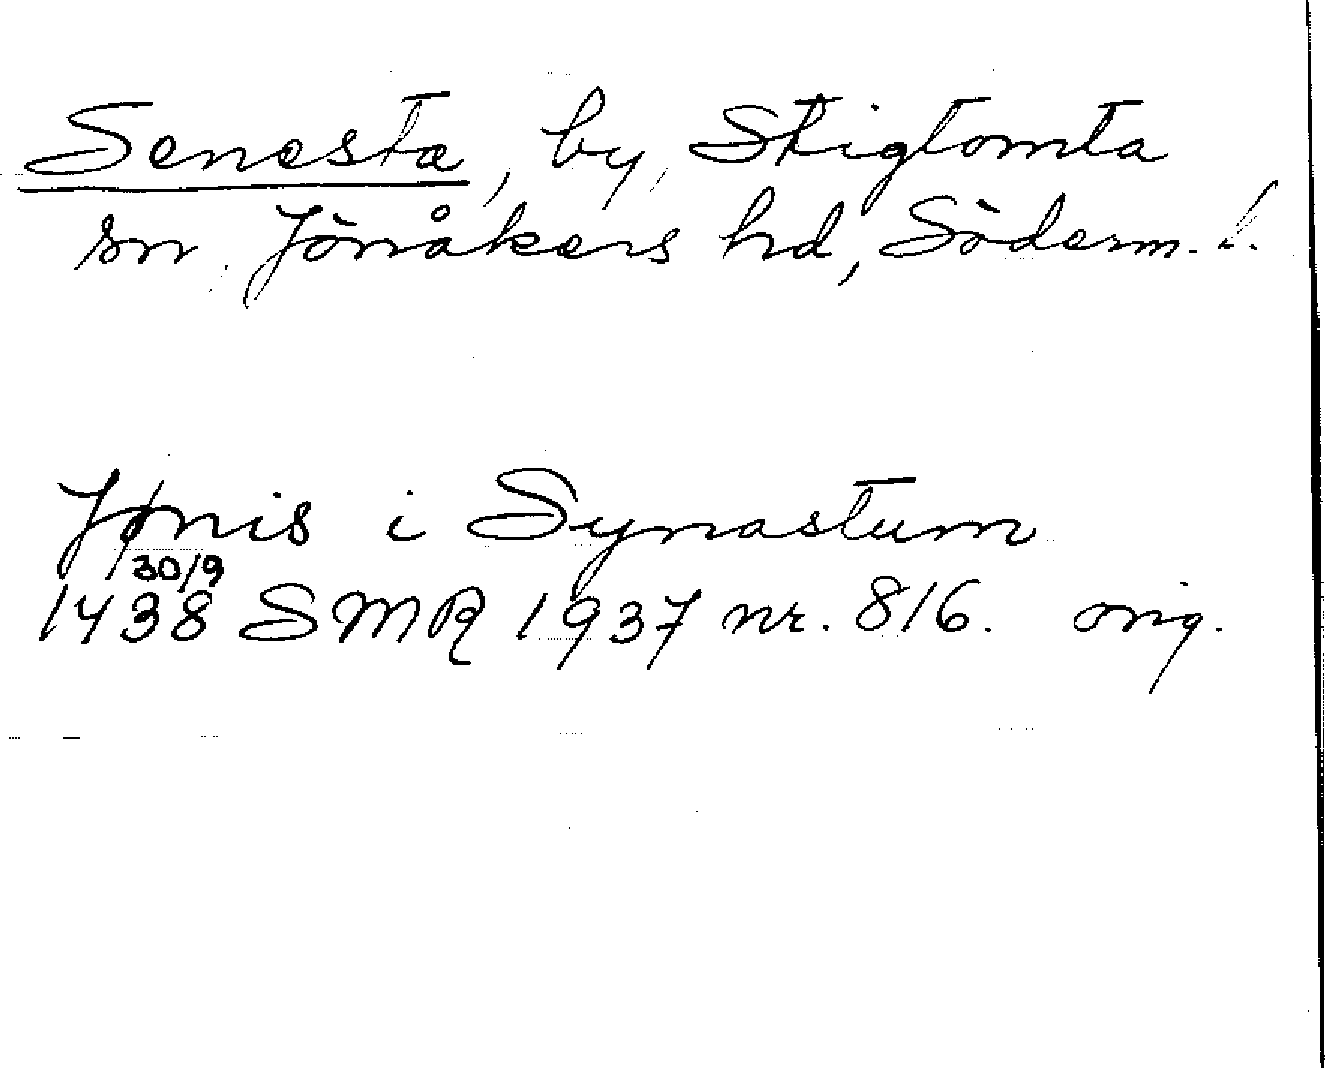 Senesta, by, Stigtomta
sn, Jönåkers hd, Söderm. l.
Jønis i Synastum
30/9
1438 SMR 1937 nr. 816. orig.